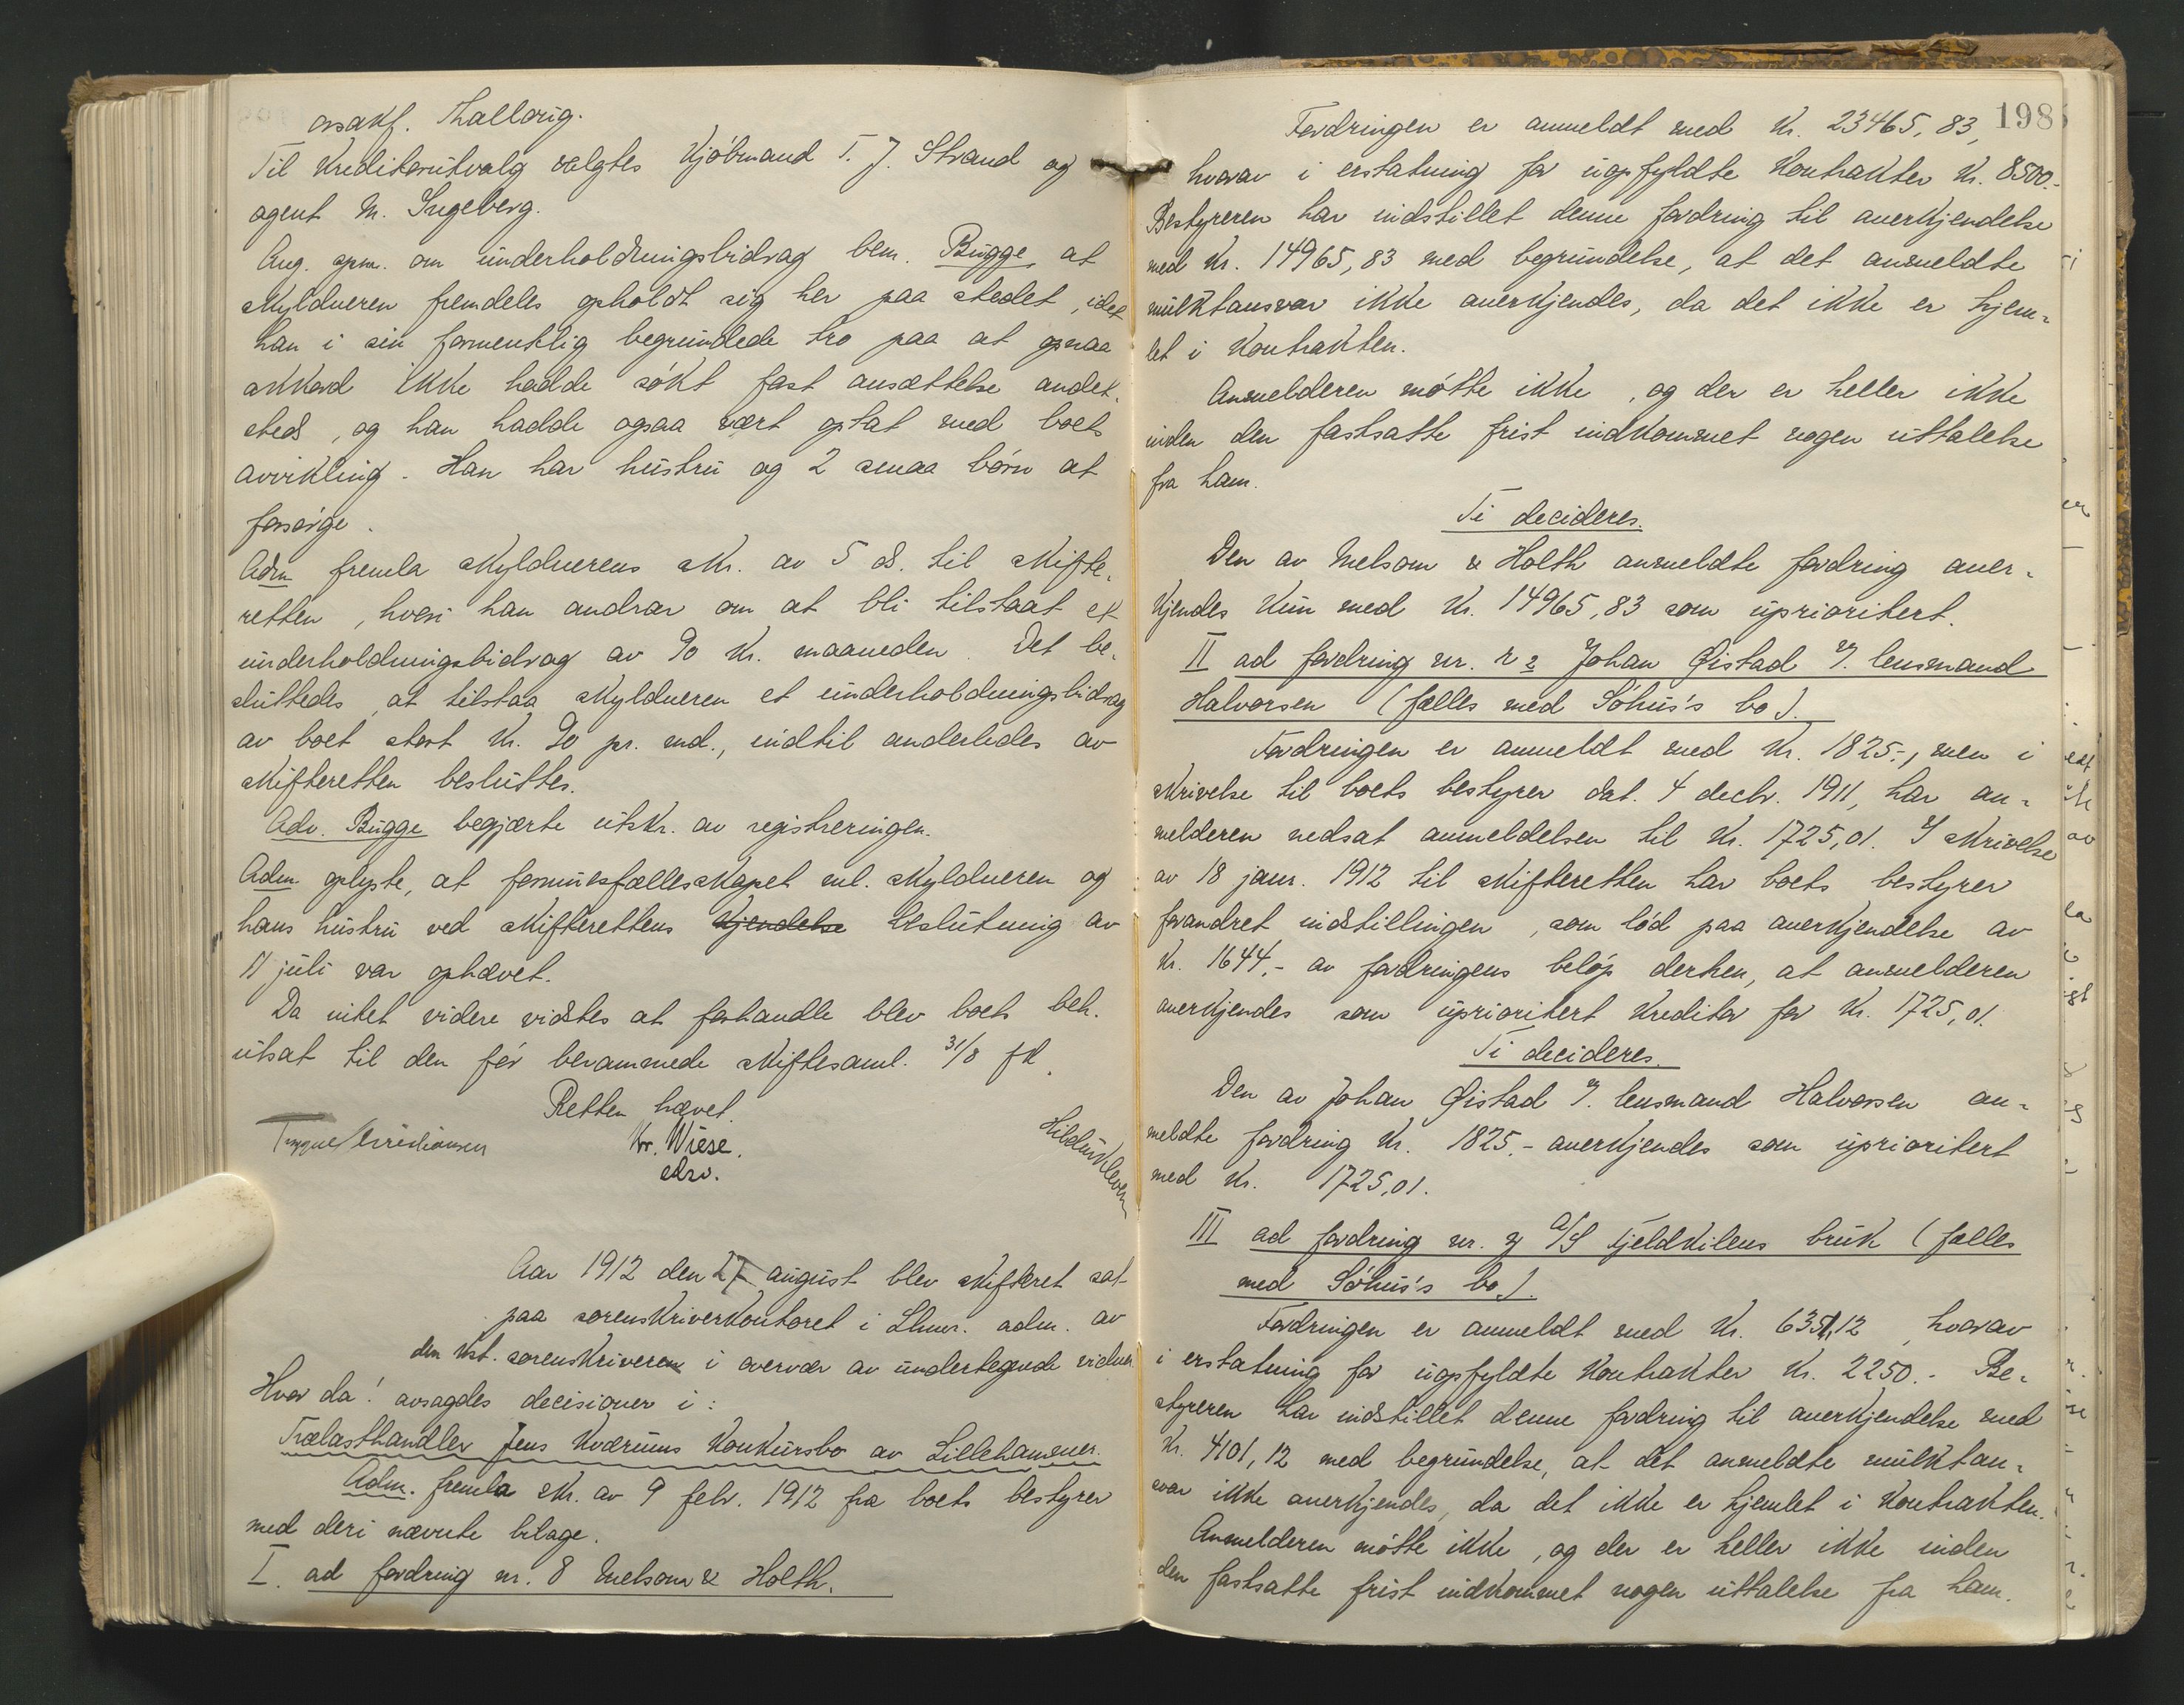 osakf. Thallaug.
Til kreditorutvalg valgtes kjøbmand T. J. Strand og
agent M. Ingeberg.
Ang. spm. om underholdningsbidrag bem. Bugge, at
skyldneren fremdeles opholdt sig her paa stedet, idet
han i sin formentlig begrundede tro paa at opnaa
akkord ikke hadde søkt fast ansættelse andet,
steds, og han hadde ogsaa vært optat med boets
avvikling. Han har hustru og 2 smaa børn at
forsørge.
Adm fremla skyldnerens skr. av 5 ds. til skifte,
retten, hvori han andrar om at bli tilstaat et
underholdningsbidrag av 90 kr. maaneden. Det be,
sluttedes, at tilstaa skyldneren et underholdningsbidrag
av boet stort kr. 90 pr. md., indtil anderledes av
skifteretten besluttes.
Adv. Bugge begjærte utskr. av registreringen.
Adm. oplyste, at formuesfællesskapet ml. skyldneren og
hans hustru ved skifterettens kjendelse beslutning av
11 juli var ophævet.
Da intet videre vidstes at forhandle blev boets beh.
utsat til den før berammede skiftesaml. 31/8 fk.
Retten hævet.
Trygve Christiansen Kr. Wiese. Hild
cst.
Aar 1912 den 27 august blev skifteret sat
paa sorenskriverkontoret i Lhmr. adm. av
den kst. sorenskriveren i overvær av undertegnede vidner
Hvor da! avsagdes decisioner i:
Trælasthandler Jens Kværums konkursbo av Lillehammer.
Adm. fremla skr. av 9 febr. 1912 fra boets bestyrer
med deri nævnte bilage.
I. ad fordring nr. 8 Melsom & Holth.
198
Fordringen er anmeldt med kr. 23465,83,
hvorav i erstatning for uopfyldte kontrakter kr. 8500.-
Bestyreren har indstillet denne fordring til anerkjendelse
med kr. 14965,83 med begrundelse, at det anmeldte
mulktansvar ikke anerkjendes, da det ikke er hjem-
let i kontrakten.
Anmelderen møtte ikke, og der er heller ikke
inden den fastsatte frist indkommet nogen uttalelse
fra ham.
Ti decideres.
Den av Melsom & Holth anmeldte fordring aner-
kjendes kun med kr. 14965,83 som uprioritert.
II ad fordring nr. Johan Øistad v/ lensmand
Halvorsen (fælles med Søhus's bo).
Fordringen er anmeldt med kr. 1825.-, men i
skrivelse til boets bestyrer dat. 4 decbr. 1911, har an-
melderen nedsat anmeldelsen til kr. 1725,01. I skrivelse
av 18 janr. 1912 til skifteretten har boets bestyrer
forandret indstillingen, som lød paa anerkjendelse av
kr. 1644.- av fordringens beløp derhen, at anmelderen
anerkjendes som uprioritert kreditor for kr. 1725,01.
Ti decideres.
Den av Johan Øistad v/ lensmand Halvorsen an-
meldte fordring kr. 1825.- anerkjendes som uprioritert
med kr. 1725,01.
III ad fordring nr. A/S Fjeldkilens bruk (fælles
med Søhus's bo).
Fordringen er anmeldt med kr. 6351,12, hvorav
i erstatning for uopfyldte kontrakter kr. 2250.- Be-
styreren har indstillet denne fordring til anerkjendelse med
kr. 4101,12 med begrundelse, at det anmeldte mulktan-
svar ikke anerkjendes, da det ikke er hjemlet i kontrakten.
Anmelderen møtte ikke, og der er heller ikke inden
den fastsatte frist indkommet nogen uttalelse fra ham.